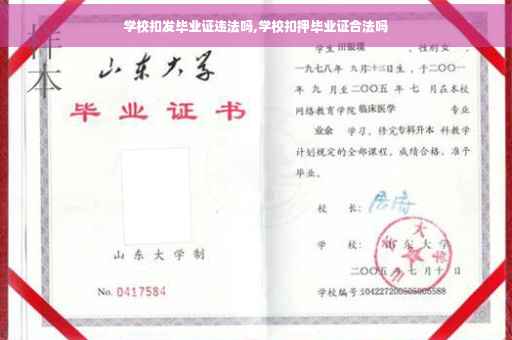 学校扣发毕业证违法吗,学校扣押毕业证合法吗
样本
山东大学
毕业证书
山东大学制
No. 0417584
学生 田银环 ，性别女，
一九七八年 九月十三日生，于二〇〇一
年 九 月至二〇〇五 年 七 月在本校
网络教育学院临床医学 专业
业余 学习，修完专科升本 科教学
计划规定的全部课程，成绩合格，准予
毕业。
校 长：
学 校：山东大学
二〇〇五 年 七 月 十 日
学校编号:104227200505005588